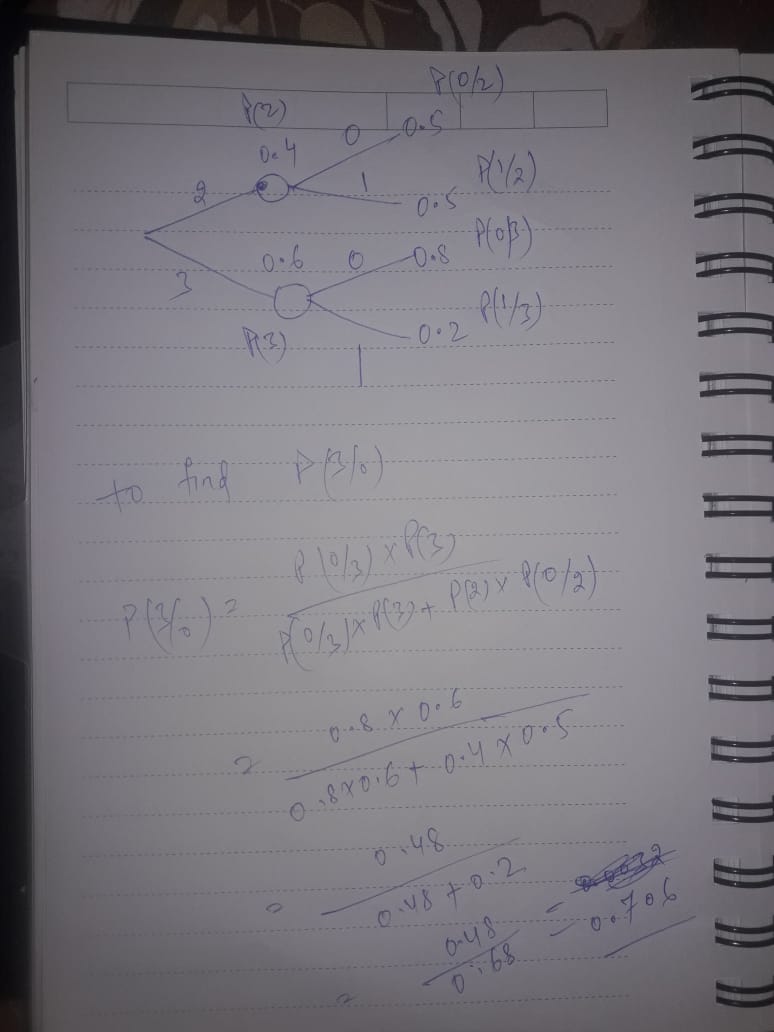 P(0/2)
P(2)
0 0.5
0.4
2 1 P(1/2)
0.5
0.6 0 0.8 P(0/3)
3
P(3) 0.2 P(1/3)
1
to find P(3/0)
P(3/0) = P(0/3) x P(3)
P(0/3) x P(3) + P(2) x P(0/2)
= 0.8 x 0.6
0.8 x 0.6 + 0.4 x 0.5
= 0.48
0.48 + 0.2
= 0.48 = 0.706
0.68